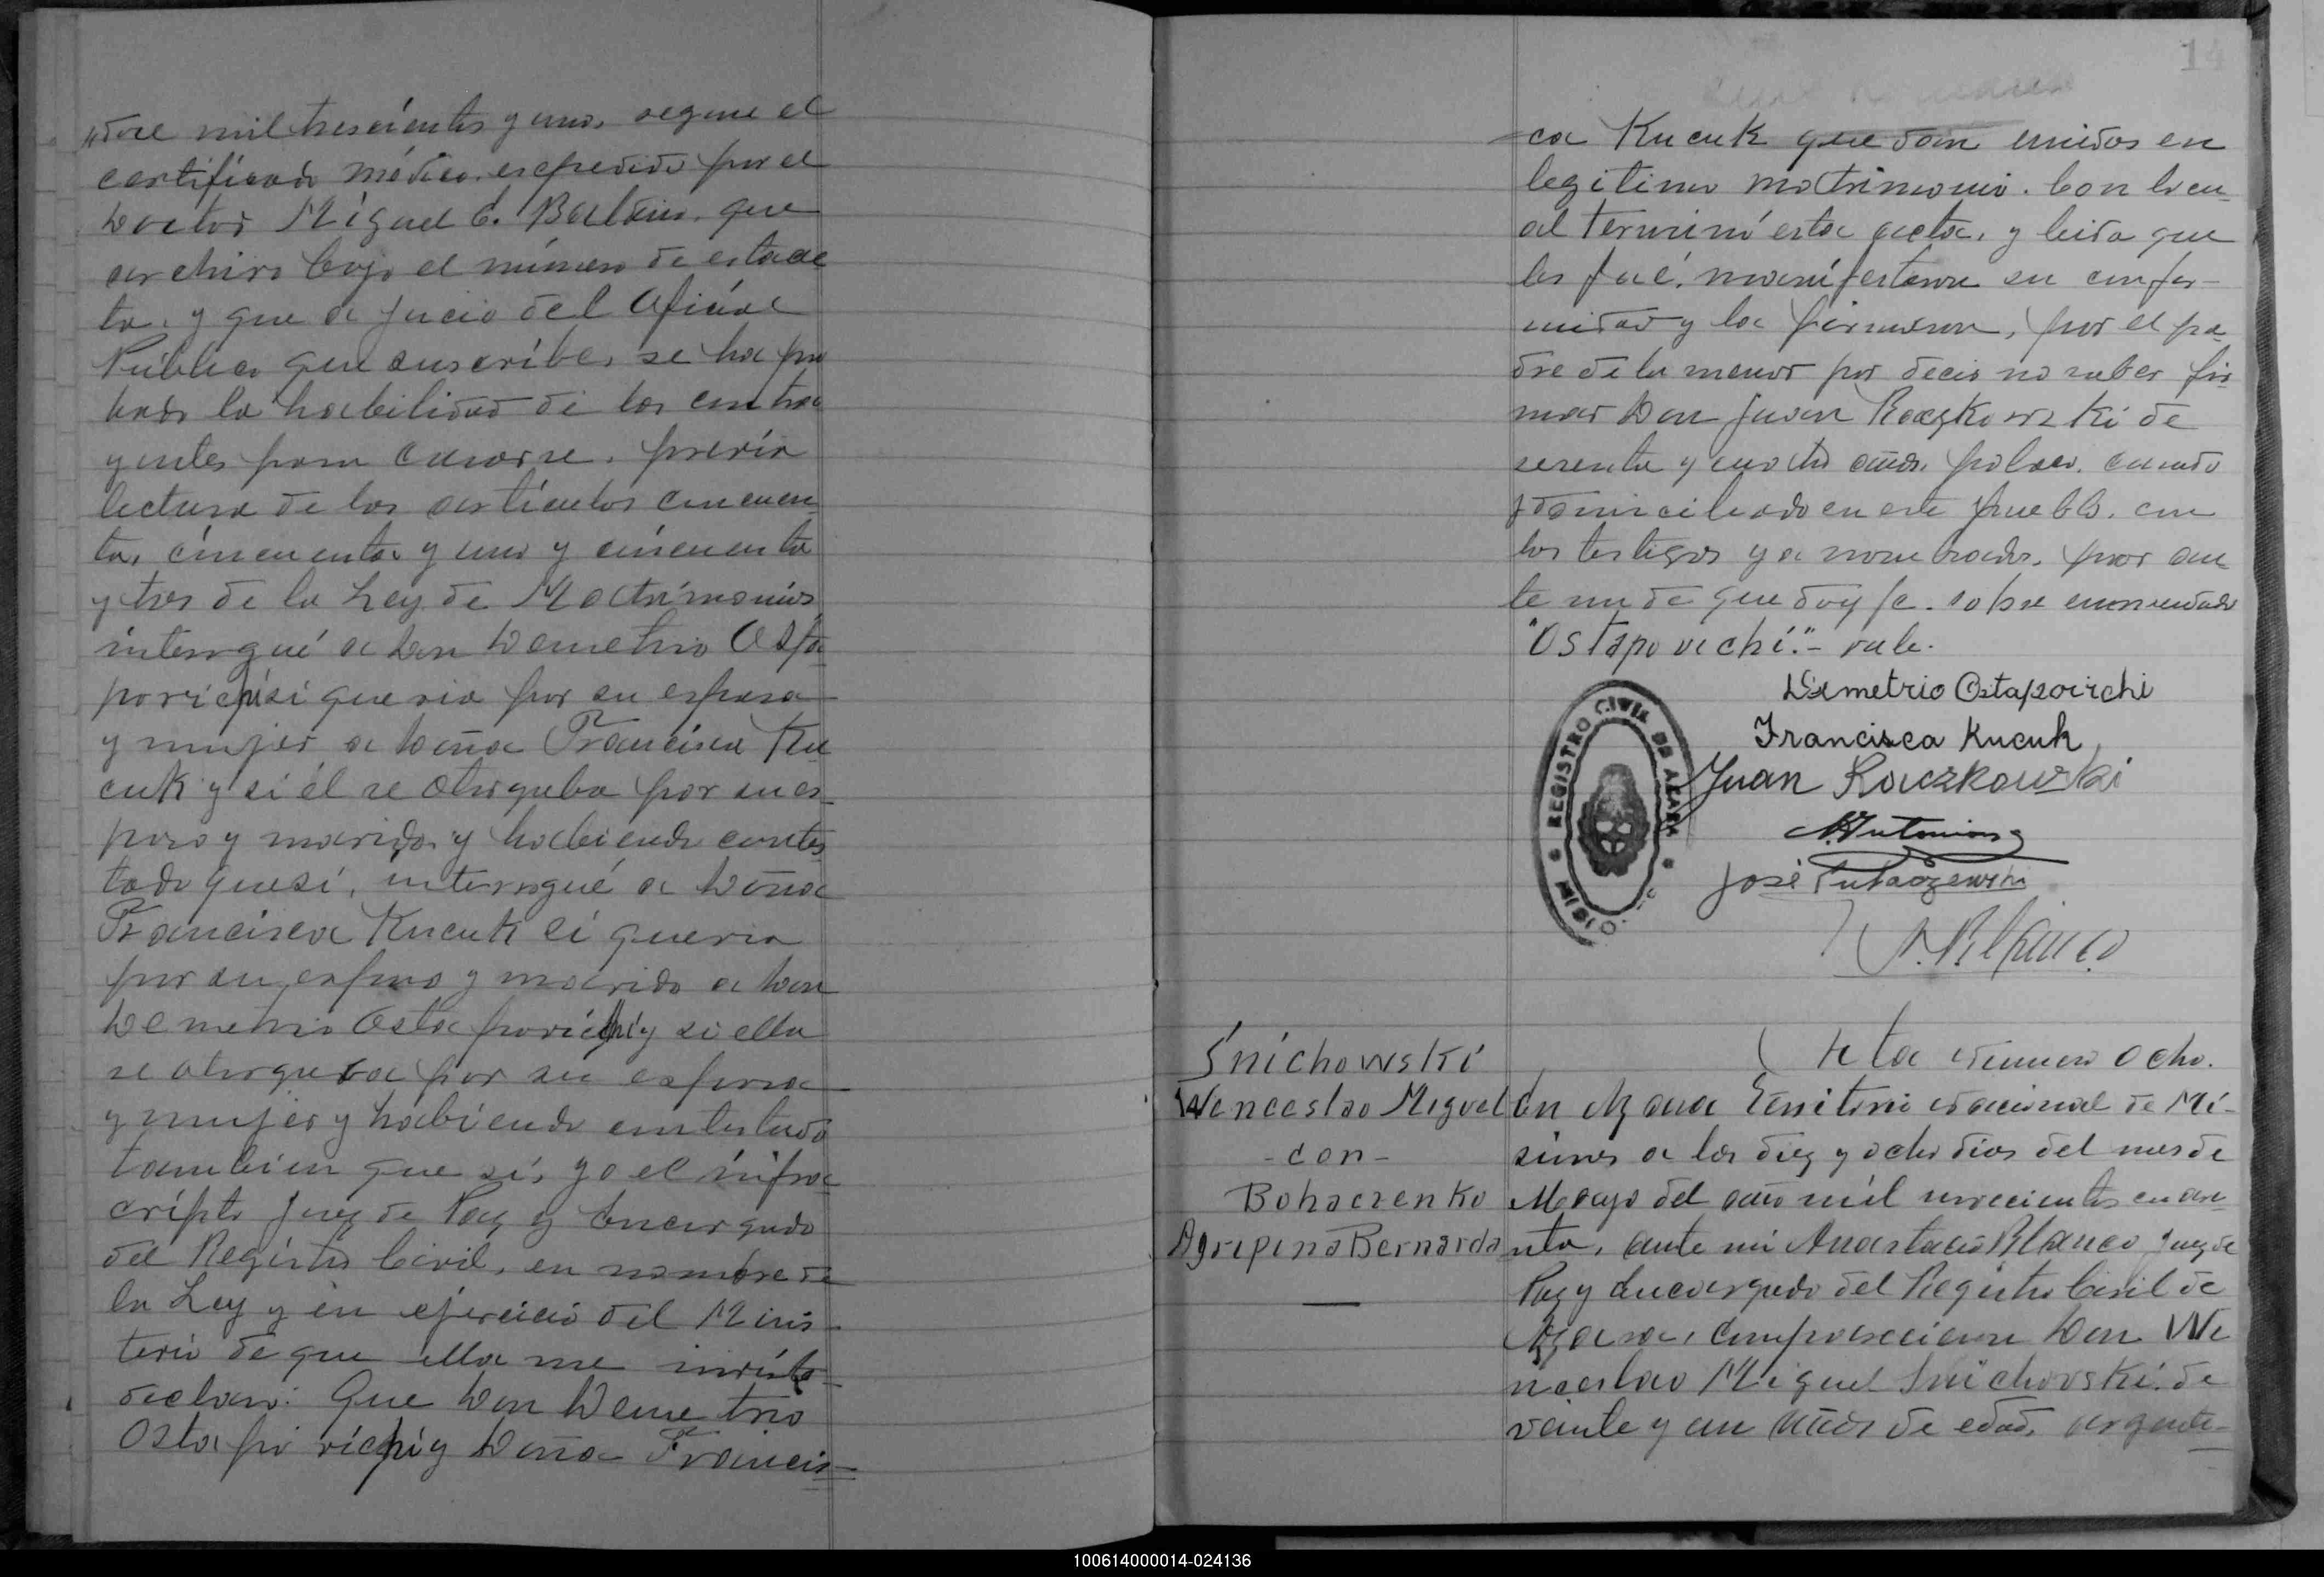 mil trescientos y uno, segun el
certificado médico expedido por el
Doctor Miguel C. que
archivo bajo el número de esta ac
ta, y que a jucio del Oficial
Público que suscribe, se ha pro
bado la habilidad de los contra
yentes para casarse. previa
lectura de los artículos cincuen
ta, cincuenta y uno y cincuenta
y tres de la Ley de Matrimonios
interrogué a Don Demetrio Osta
povichi si queria por su esposa
y mujer a Doña Francisca Ku
cuk y si él se otorgaba por su es-
poso y marido, y habiendo contes
tado que sí, interrogué a Doña
Francisca Kucuk si queria
por su esposo y marido a Don
Demetrio Ostapovichi y si ella
se otorgaba por su esposa
y mujer y habiendo contestado
tambien que sí, yo el infra-
cripto Juez de Paz y Encargado
del Registro Civil, en nombre de
la Ley y en ejercicio del Minis-
terio de que ella me inviste
declaro: Que Don Demetrio
Ostapovichi y Doña Francis-
14
ca Kucuk quedan unidos en
legitimo matrimonio. Con lo cu-
al terminó esta acta, y leida que
les fué, manifestaron su confor-
midad y la firmaron, por el pa-
dre de la menor por decir no saber fir-
mar Don Juan Raczkowski de
sesenta y cuatro años, polaco, casado
y domiciliado en este pueblo, con
los testigos ya nombrados, por an-
te mi de que doy fe. sobre enmendado
"Ostapovichi".- vale.
Demetrio Ostapovichi
Francisca Kucuk
Juan Raczkowski
José
A. Blanco
REGISTRO CIVIL DE AZARA
MISIONES
Śnichowski
Wenceslao Miguel
- con -
Bohaczenko
Agripina Bernarda
Acta número ocho.
En Azara Territorio Nacional de Mi-
siones a los diez y ocho dias del mes de
Mayo del año mil novecientos cuare-
nta, ante mi Anastacio Blanco Juez de
Paz y Encargado del Registro Civil de
Azara, comparecieron Don We
nceslao Miguel Śnichovski de
veinte y un años de edad, argenti-